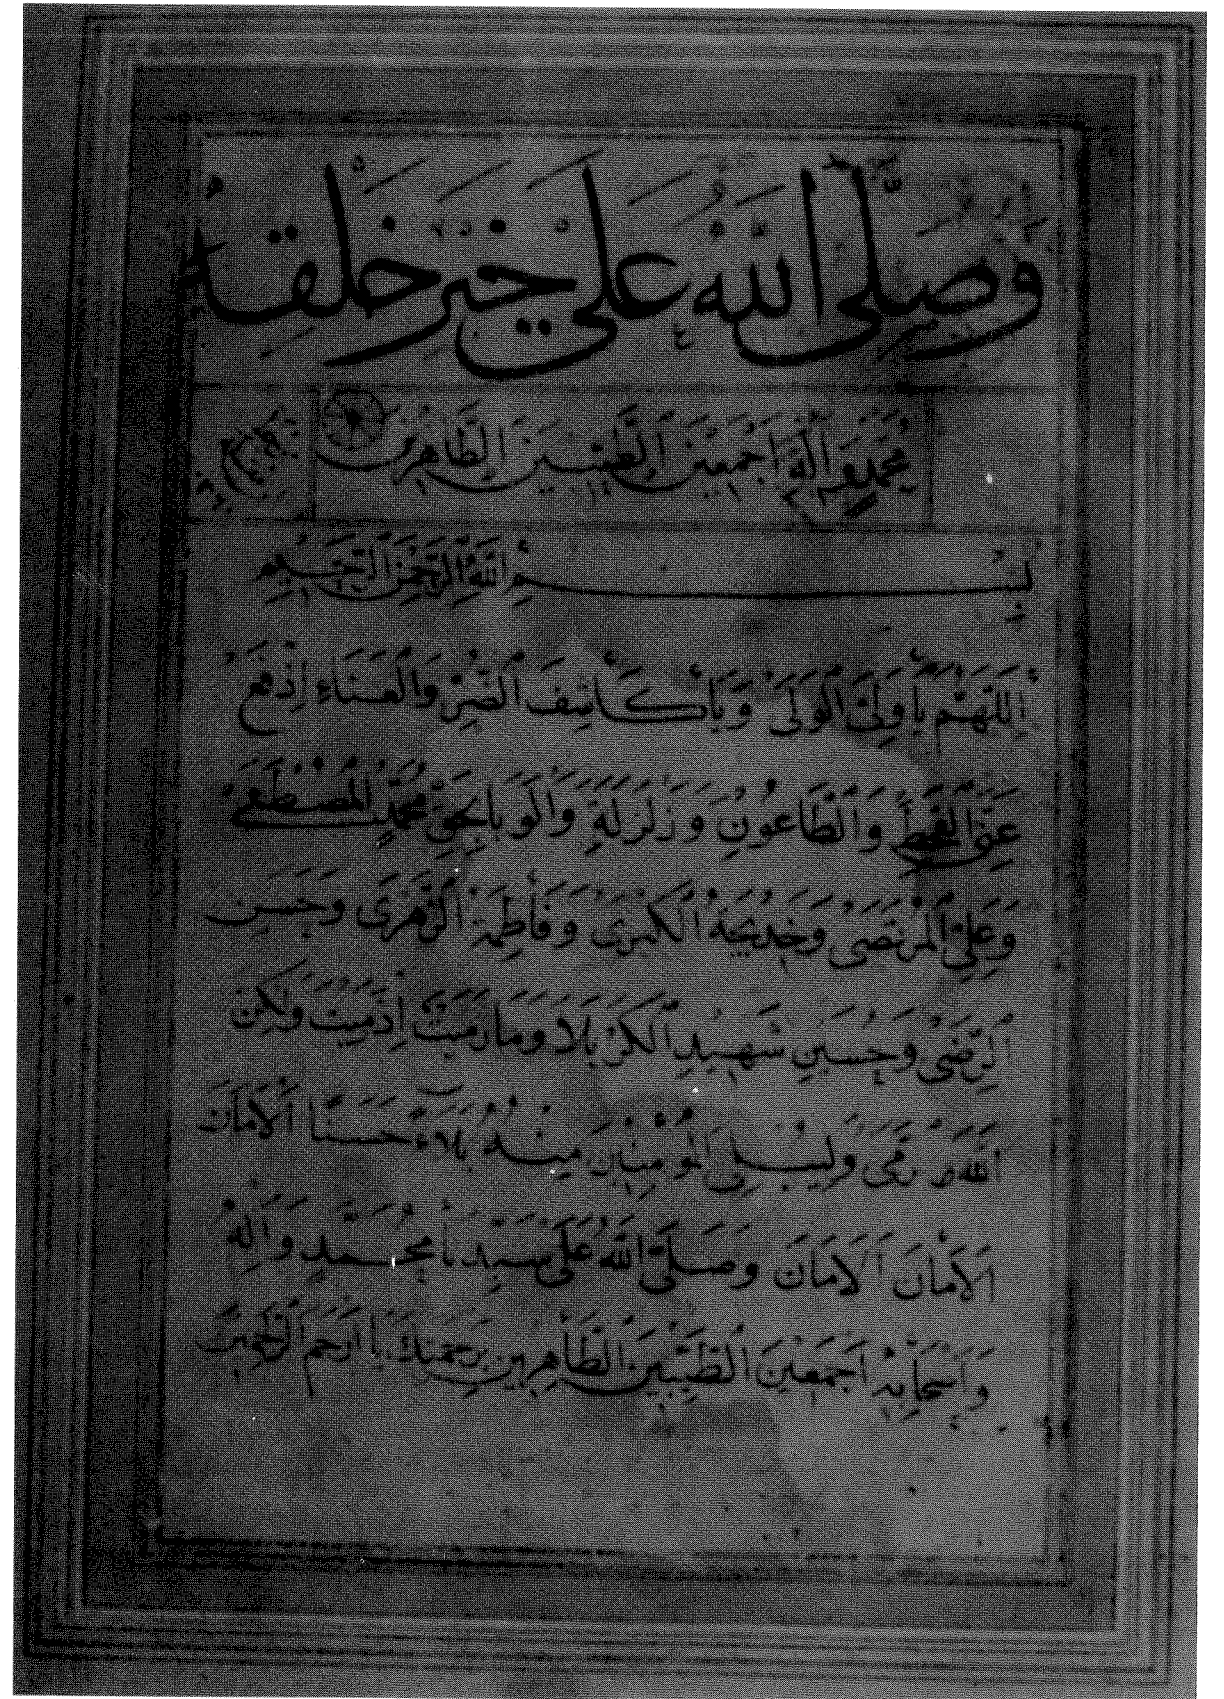 وَصَلَّى اللّٰهُ عَلَى خَيْرِ خَلْقِهِ
مُحَمَّدٍ وَاٰلِهِ اَجْمَعِيْنَ الطَّيِّبِيْنَ الطَّاهِرِيْنَ
بِسْمِ اللّٰهِ الرَّحْمٰنِ الرَّحِيْمِ
اَللّٰهُمَّ يَا وَلِيَّ الْوَلَى وَيَا كَاشِفَ الضُّرِّ وَالْعَنَاءِ اِدْفَعْ
عَنِّي الْقَحْطَ وَالطَّاعُونِ وَزَلْزَلَةِ وَالْوَبَا بِحَقِّ مُحَمَّدٍ الْمُصْطَفَى
وَعَلِيِّ الْمُرْتَضَى وَخَدِيجَةُ الْكُبْرَى وَفَاطِمَةِ الزَّهْرَى وَحَسَنِ
الرِّضَى وَحُسَيْنِ شَهِيْدِ الْكَرْبَلَا وَمَا رَمَيْتَ اِذْ رَمَيْتَ وَلٰكِنَّ
اللّٰهَ رَمَى وَلِيُبْلِيَ الْمُؤْمِنِيْنَ مِنْهُ بَلَاءً حَسَنًا اَلْاَمَان
اَلْاَمَانَ اَلْاَمَانَ وَصَلَّى اللّٰهُ عَلَى سَيِّدِنَا مُحَمَّدٍ وَاٰلِهِ
وَاَصْحَابِهِ اَجْمَعِيْنَ الطَّيِّبِيْنَ الطَّاهِرِيْنَ بِرَحْمَتِكَ يَا اَرْحَمَ الرَّاحِمِيْنَ